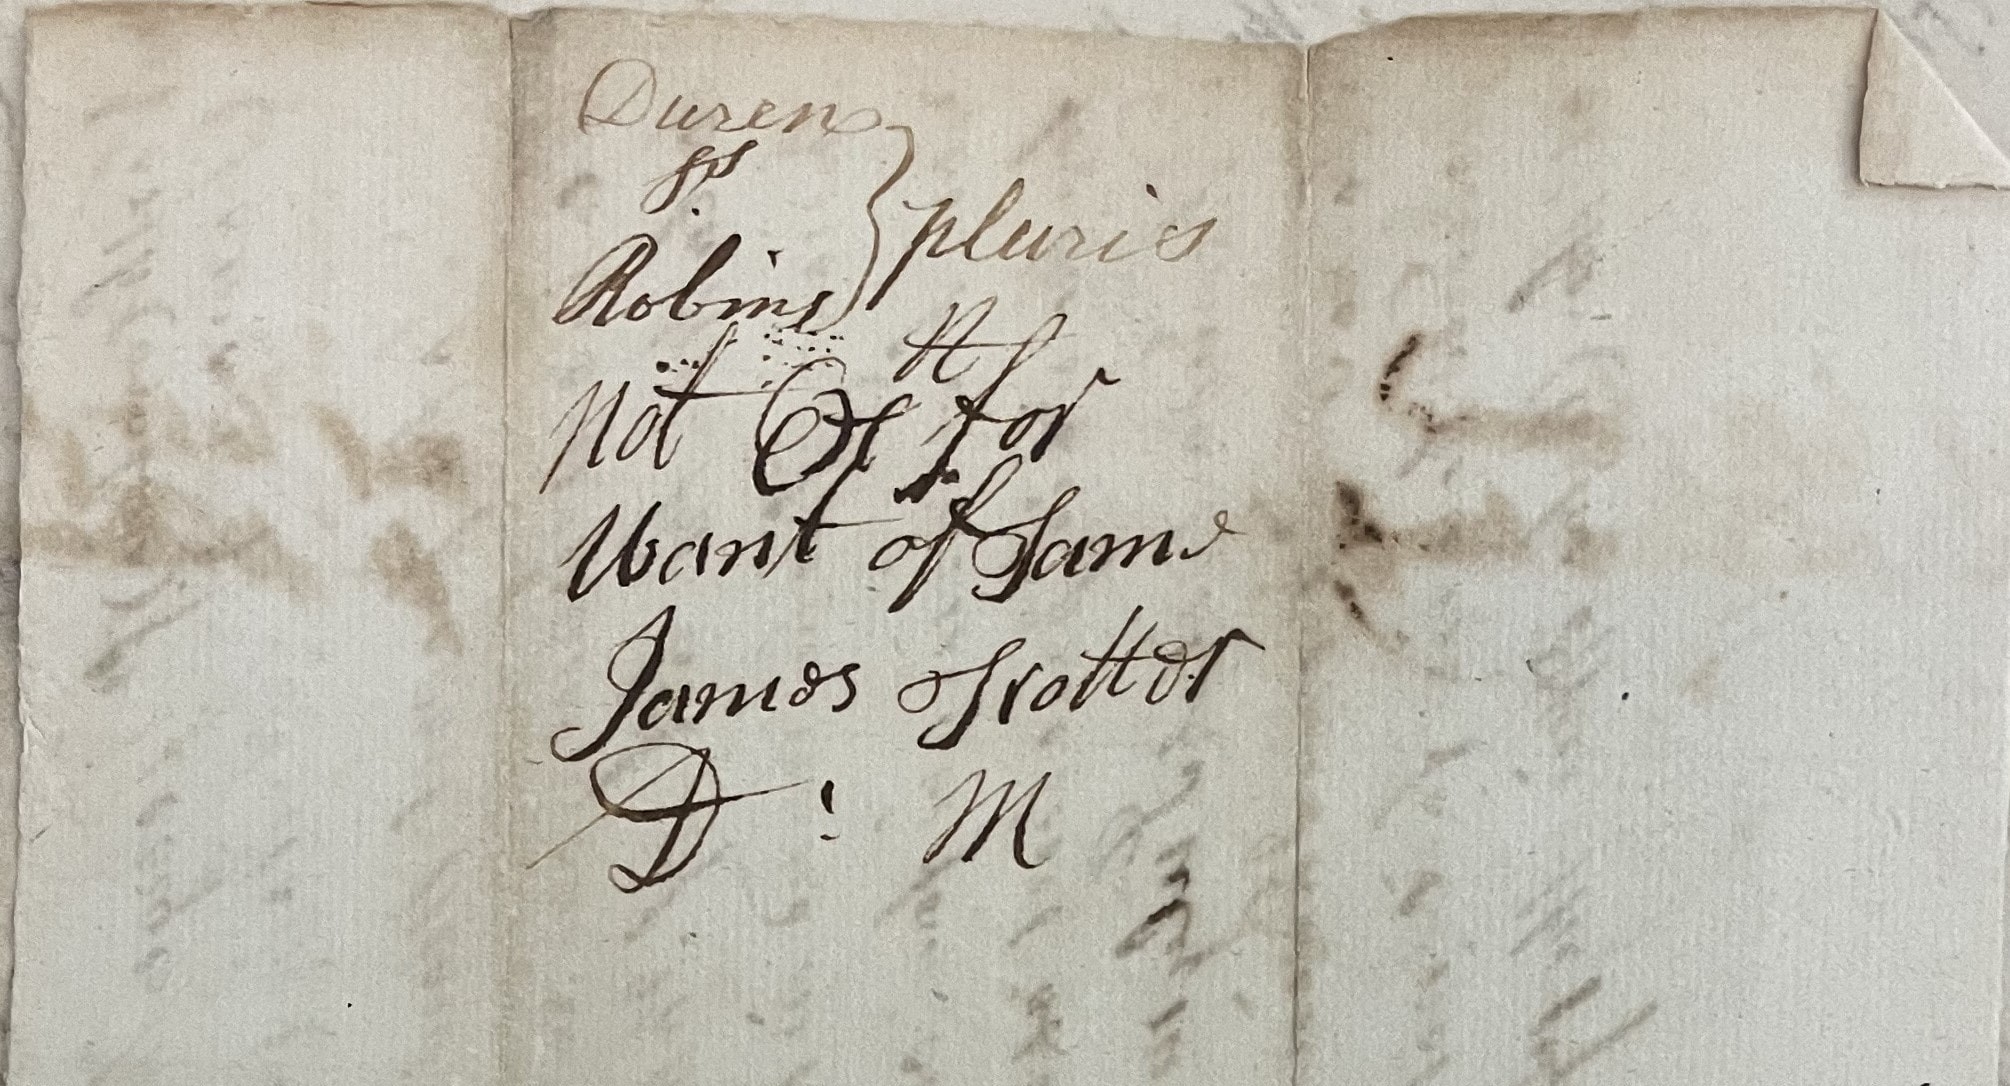 Duren
vs.
Robins } pluries
Not Ex for
Want of Same
James Trotter
D : M